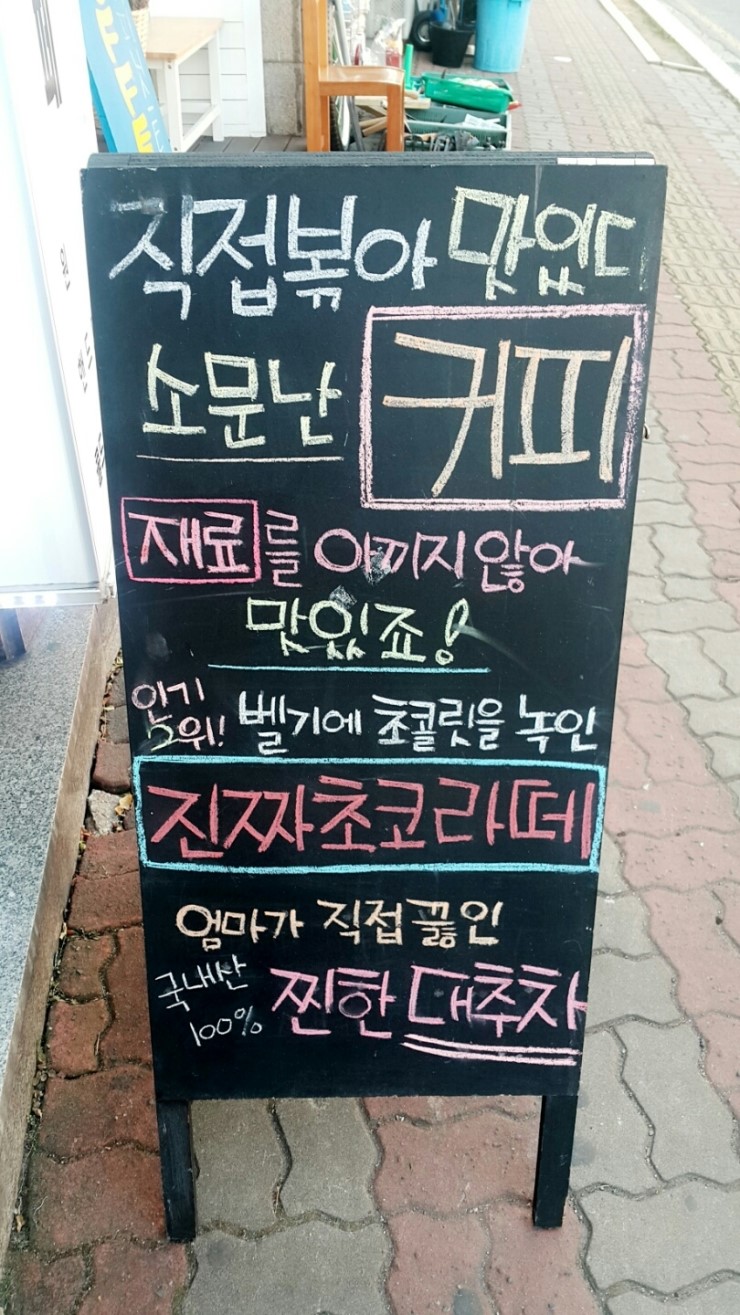 직접볶아 맛있다
소문난 커피
재료를 아끼지않아
맛있죠!
인기 2위! 벨기에 초콜릿을 녹인
진짜초코라떼
엄마가 직접 끓인
국내산 100% 찐한 대추차